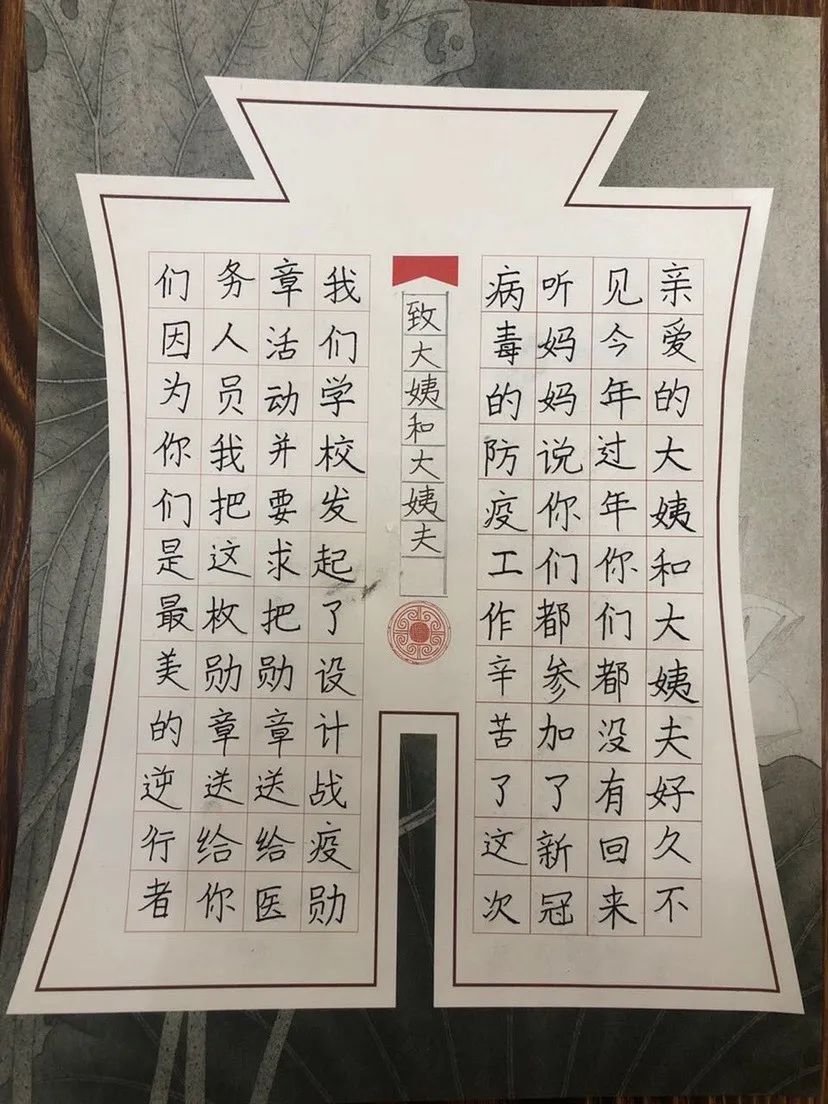 亲爱的大姨和大姨夫好久不
见今年过年你们都没有回来
听妈妈说你们都参加了新冠
病毒的防疫工作辛苦了这次
致大姨和大姨夫
我们学校发起了设计战疫勋
章活动并要求把勋章送给医
务人员我把这枚勋章送给你
们因为你们是最美的逆行者